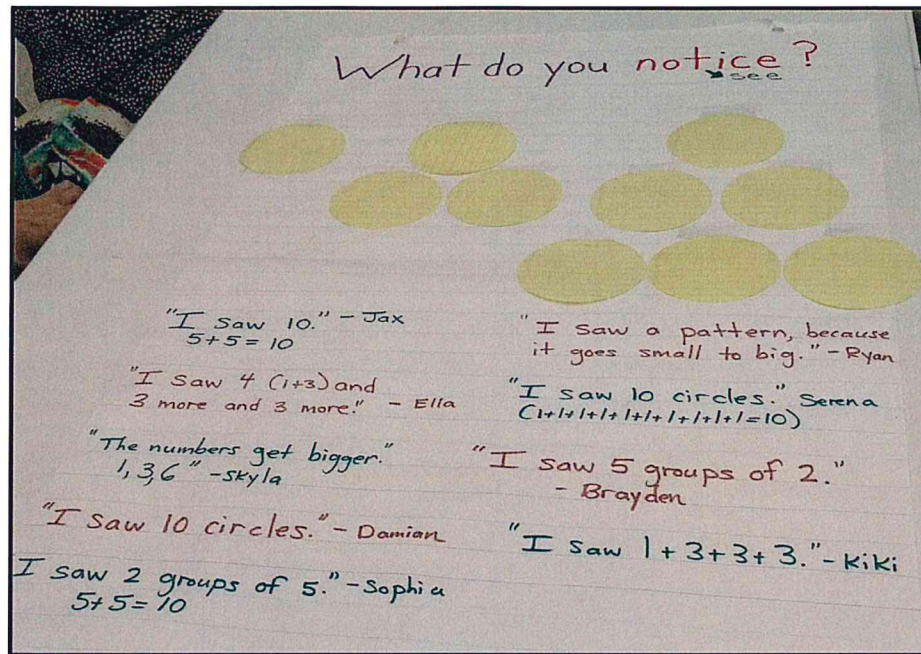 What do you notice?
see
"I saw 10." - Jax
5+5=10
"I saw 4 (1+3) and
3 more and 3 more." - Ella
"The numbers get bigger."
1,3,6" -Skyla
"I saw 10 circles." - Damian
I saw 2 groups of 5." -Sophia
5+5=10
"I saw a pattern, because
it goes small to big." -Ryan
"I saw 10 circles." Serena
(1+1+1+1+1+1+1+1+1+1=10)
"I saw 5 groups of 2."
- Brayden
"I saw 1+3+3+3." -Kiki